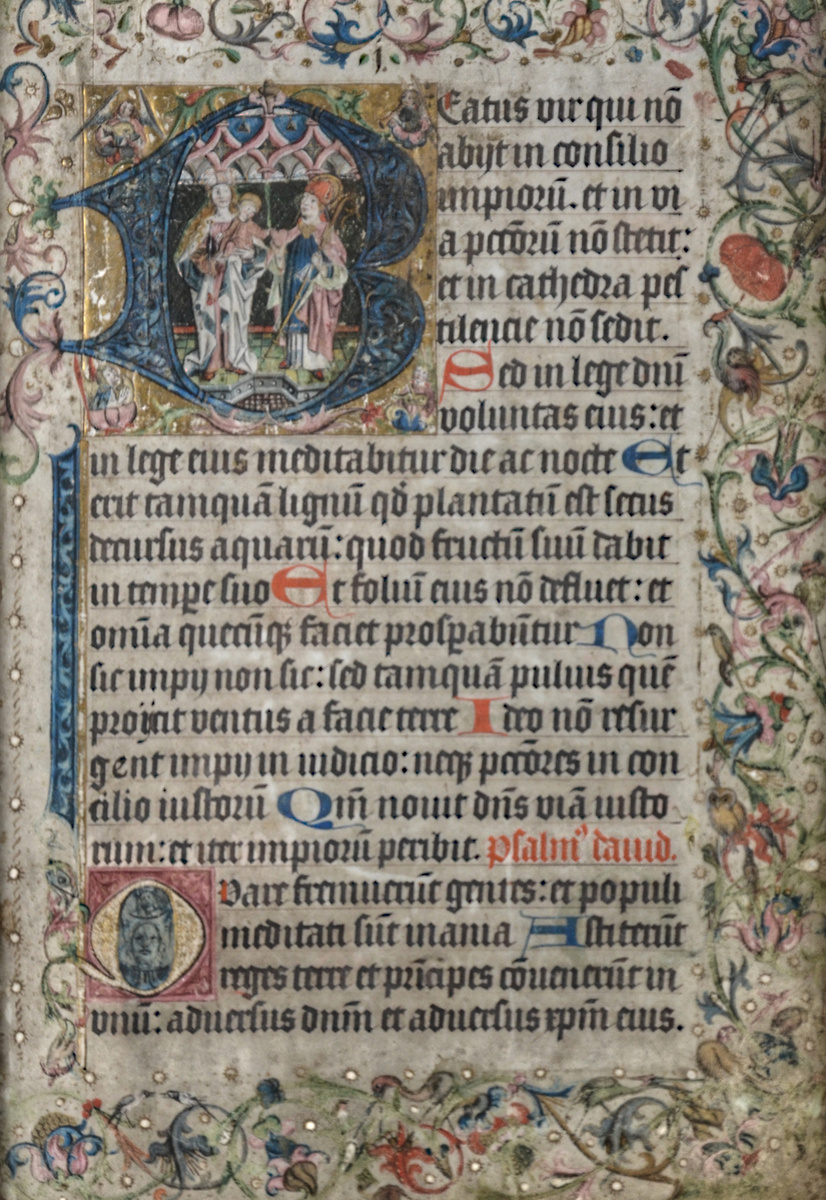 j.
Beatus vir qui nō
abijt in consilio
impiorū. et in vi
a pctōrū nō stetit:
et in cathedra pes
tilencie nō sedit.
Sed in lege dnī
voluntas eius: et
in lege eius meditabitur die ac nocte Et
erit tamquā lignū qd̄ plantatū est secus
decursus aquarū: quod fructū suū dabit
in temp̄e suo Et foliū eius nō defluet: et
omīa quecūqꝫ faciet prosp̄abūtur Non
sic impij non sic: sed tamquā puluis quē
proijcit ventus a facie terre Ideo nō resur
gent impij in iudicio: neqꝫ pctōres in con
cilio iustorū Qm̄ nouit dn̄s viā iusto
rum: et iter impiorū peribit. Psalmꝰ dauid.
Quare fremuerūt gentes: et populi
meditati sūt inania Astiterūt
reges terre et prīcipes cōuenerūt in
vnū: aduersus dnm̄ et aduersus xpm̄ eius.